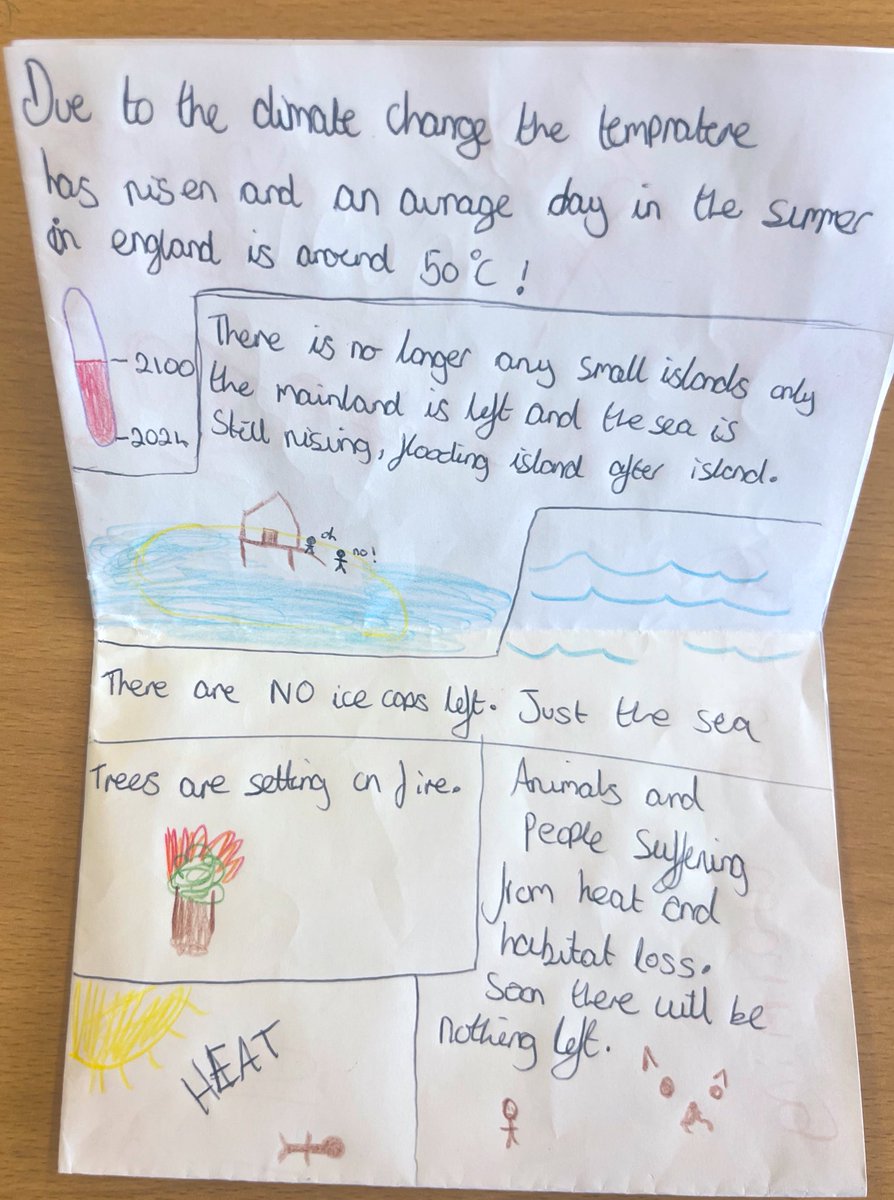 Due to the climate change the tempratere
has risen and an avrage day in the summer
in england is around 50°C!
- 2100
- 2024
There is no longer any small islands only
the mainland is left and the sea is
Still rising, flooding island after island.
oh
no!
There are NO ice caps left. Just the sea
Trees are setting on fire.
Animals and
People Suffering
from heat and
habitat loss.
Soon there will be
nothing left.
HEAT